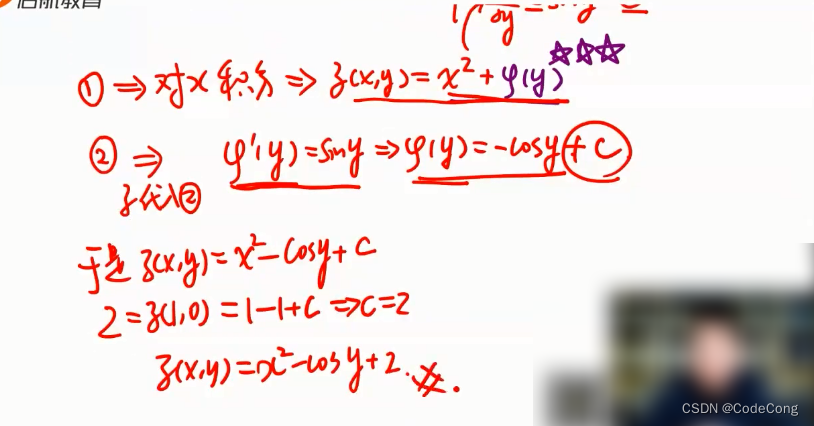 启航教育
∂y = sin y ②
① ⇒ 对x积分 ⇒ z(x,y) = x² + φ(y) ☆☆☆
② ⇒ φ'(y) = sin y ⇒ φ(y) = -cos y + C
z代入②
于是 z(x,y) = x² - cos y + C
2 = z(1,0) = 1 - 1 + C ⇒ C = 2
z(x,y) = x² - cos y + 2. #.
CSDN @CodeCong